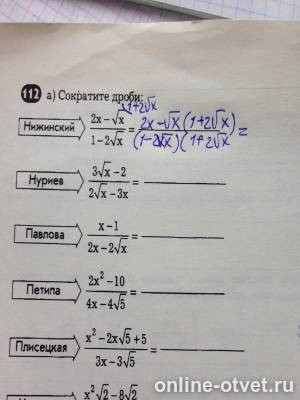 112 а) Сократите дроби:
1+2√x
Нижинский (2x − √x)/(1 − 2√x) = (2x − √x (1+2√x))/((1−2√x)(1+2√x)) =
Нуриев (3√x − 2)/(2√x − 3x) =
Павлова (x − 1)/(2x − 2√x) =
Петипа (2x² − 10)/(4x − 4√5) =
Плисецкая (x² − 2x√5 + 5)/(3x − 3√5) =
x²√2 − 8√2
online-otvet.ru